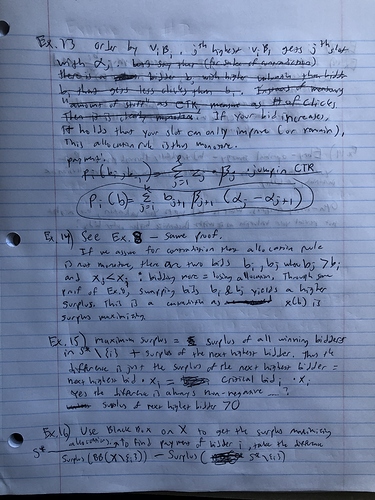 Ex. 13 order by v_i β_i, j^th highest v_i β_i gets j^th slot
with α_j. Let's say that (for sake of contradiction)
there is a bidder b_i with higher than bidder
b_j that gets less clicks than b_j. Instead of
"amount of stuff" as CTR, as # of clicks.
Then it is clearly monotone. If your bid increases,
it holds that your slot can only improve (or remain).
This allocation rule is thus monotone.
payment:
p_i(b_i, b_-i) = Σ_{j=1}^{ℓ} z_j · β_j · jump in CTR
p_i(b) = Σ_{j=i}^{k} b_{j+1} β_{j+1} (α_j - α_{j+1})
Ex. 14) See Ex. 8 - same proof.
If we assume for contradiction that allocation rule
is not monotone, there are two bids b_i, b_j when b_j > b_i
and x_j < x_i : bidding more = losing allocation. Through same
proof of Ex. 8, swapping bids b_i & b_j yields a higher
surplus. This is a contradiction as x(b) is
surplus maximizing.
Ex. 15) maximum surplus = surplus of all winning bidders
in S* \ {i} + surplus of the next highest bidder. Thus the
difference is just the surplus of the next highest bidder =
next highest bid · x_i = critical bid_i · x_i
Yes the difference is always non-negative ?
surplus of next highest bidder ≥0
Ex. 16) Use Black Box on X to get the surplus maximizing
allocation, S*. To find payment of bidder i, take the difference
Surplus(BB(X \ {i})) - Surplus( S* \ {i})